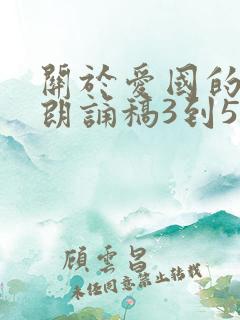 關於愛國的
朗誦稿3到5
顧雲昌
未經同意禁止轉載